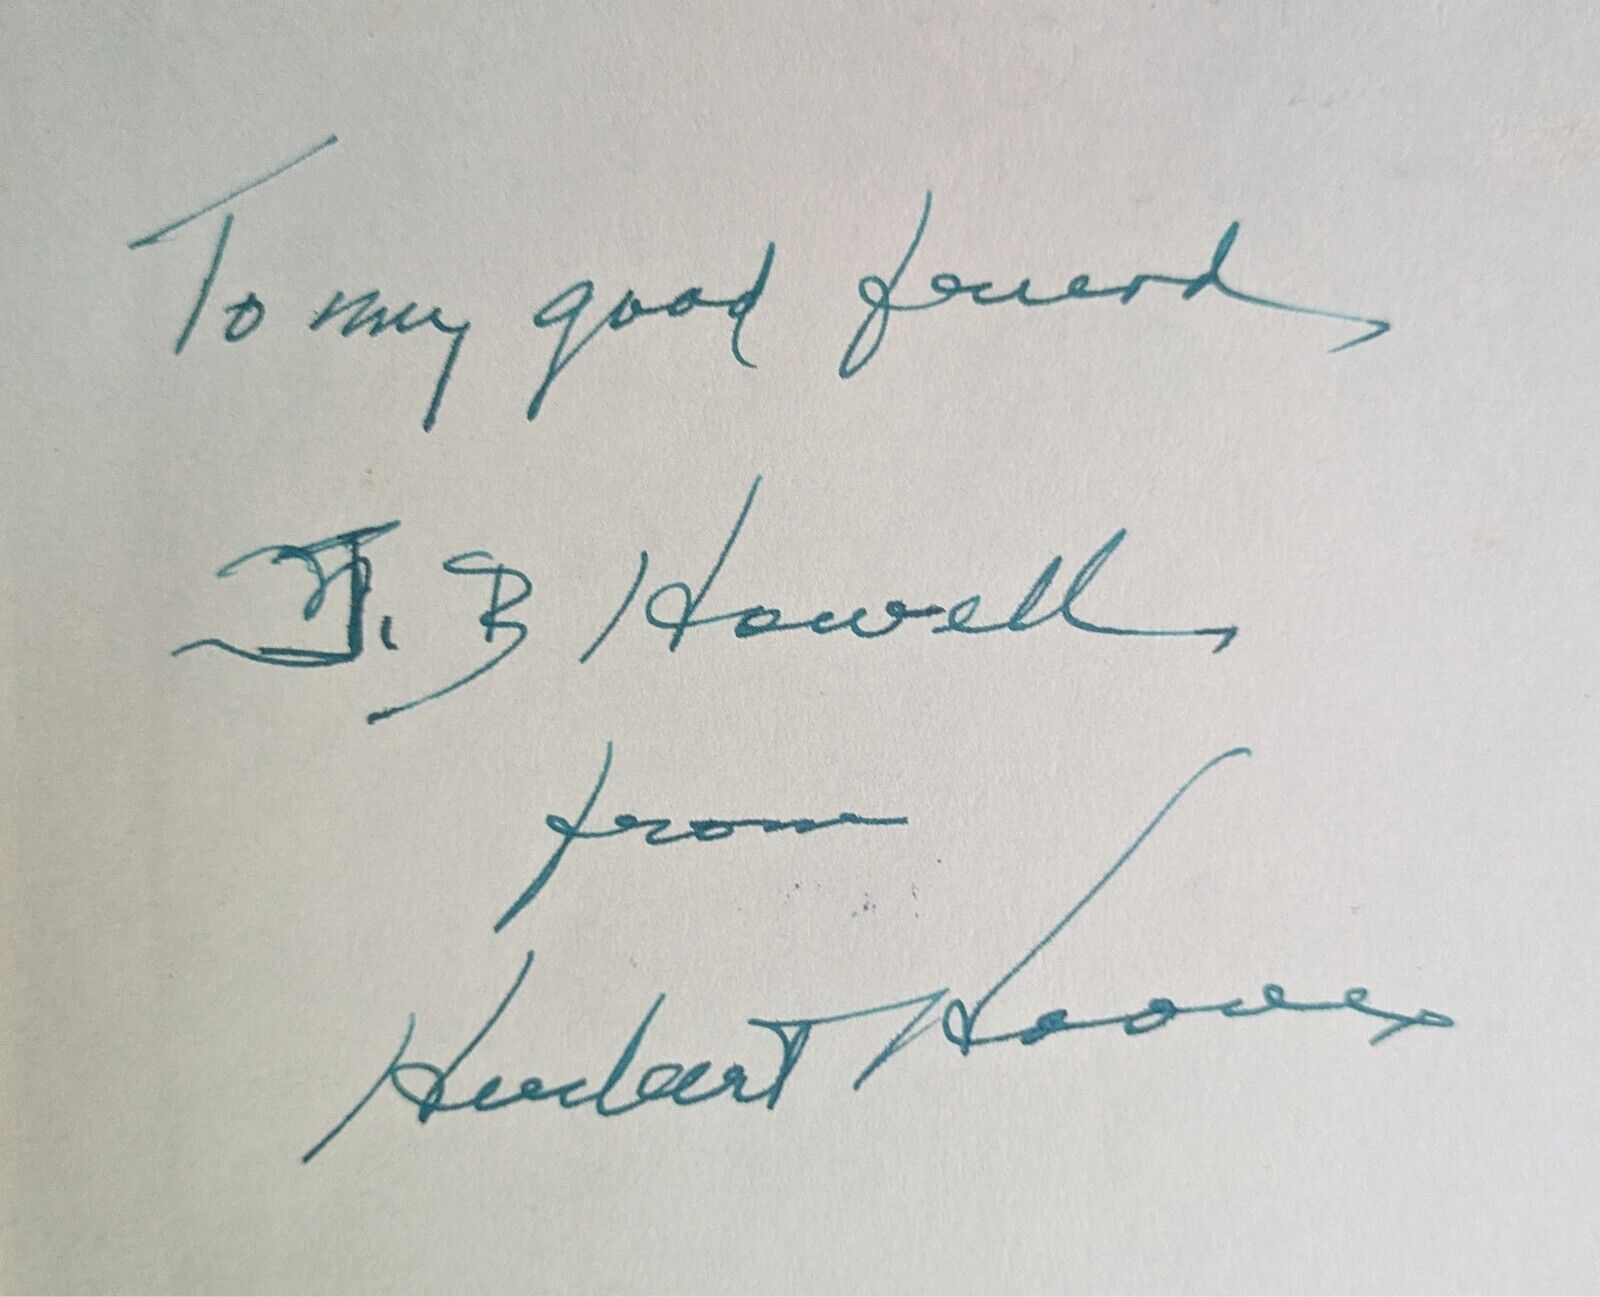 To my good friend
J. B Howell
from
Herbert Hoover